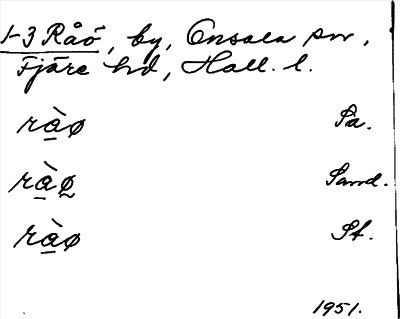 1-3 Råö, by, Onsala sn,
Fjäre hd, Hall. l.
ràø Sa.
ràø̰ Sand.
ràø St.
1951.